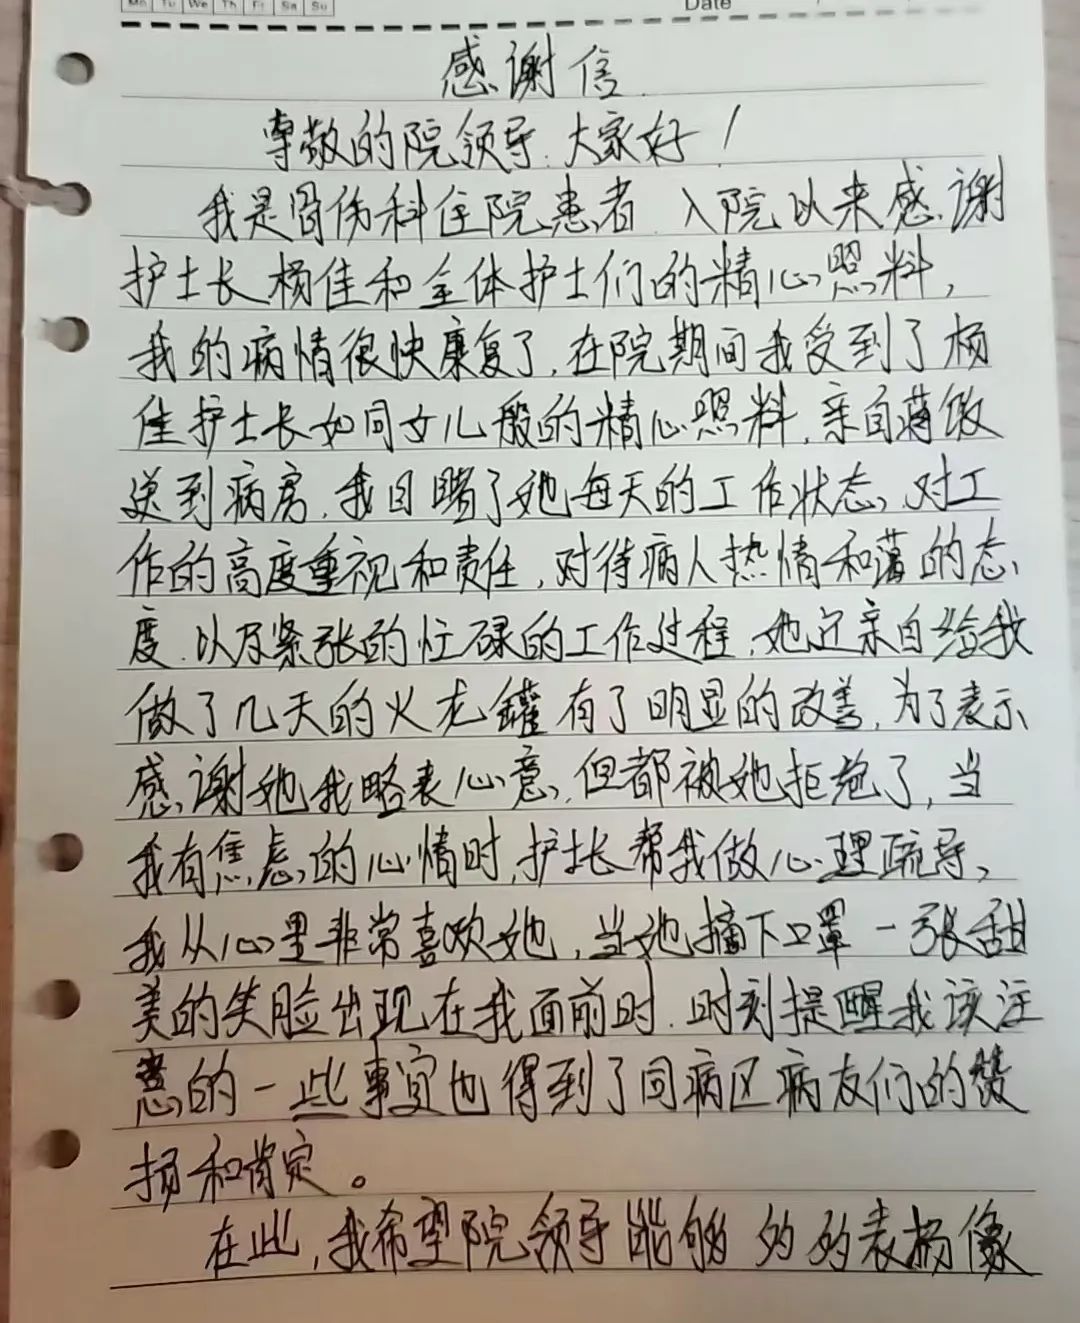 Mo Tu We Th Fr Sa Su
Date
感谢信
尊敬的院领导:大家好!
我是骨伤科住院患者.入院以来感谢
护士长杨佳和全体护士们的精心照料,
我的病情很快康复了,在院期间我受到了杨
佳护士长如同女儿般的精心照料,亲自
送到病房,我目睹了她每天的工作状态,对工
作的高度重视和责任,对待病人热情和蔼的态
度.以及紧张的忙碌的工作过程,她还亲自给我
做了几天的火龙罐有了明显的改善,为了表示
感谢她我略表心意,但都被她拒绝了,当
我有焦虑的心情时,护士长帮我做心理疏导,
我从心里非常喜欢她,当她摘下口罩一张甜
美的笑脸出现在我面前时.时刻提醒我该注
意的一些事宜也得到了同病区病友们的赞
扬和肯定。
在此,我希望院领导能够多多表扬像